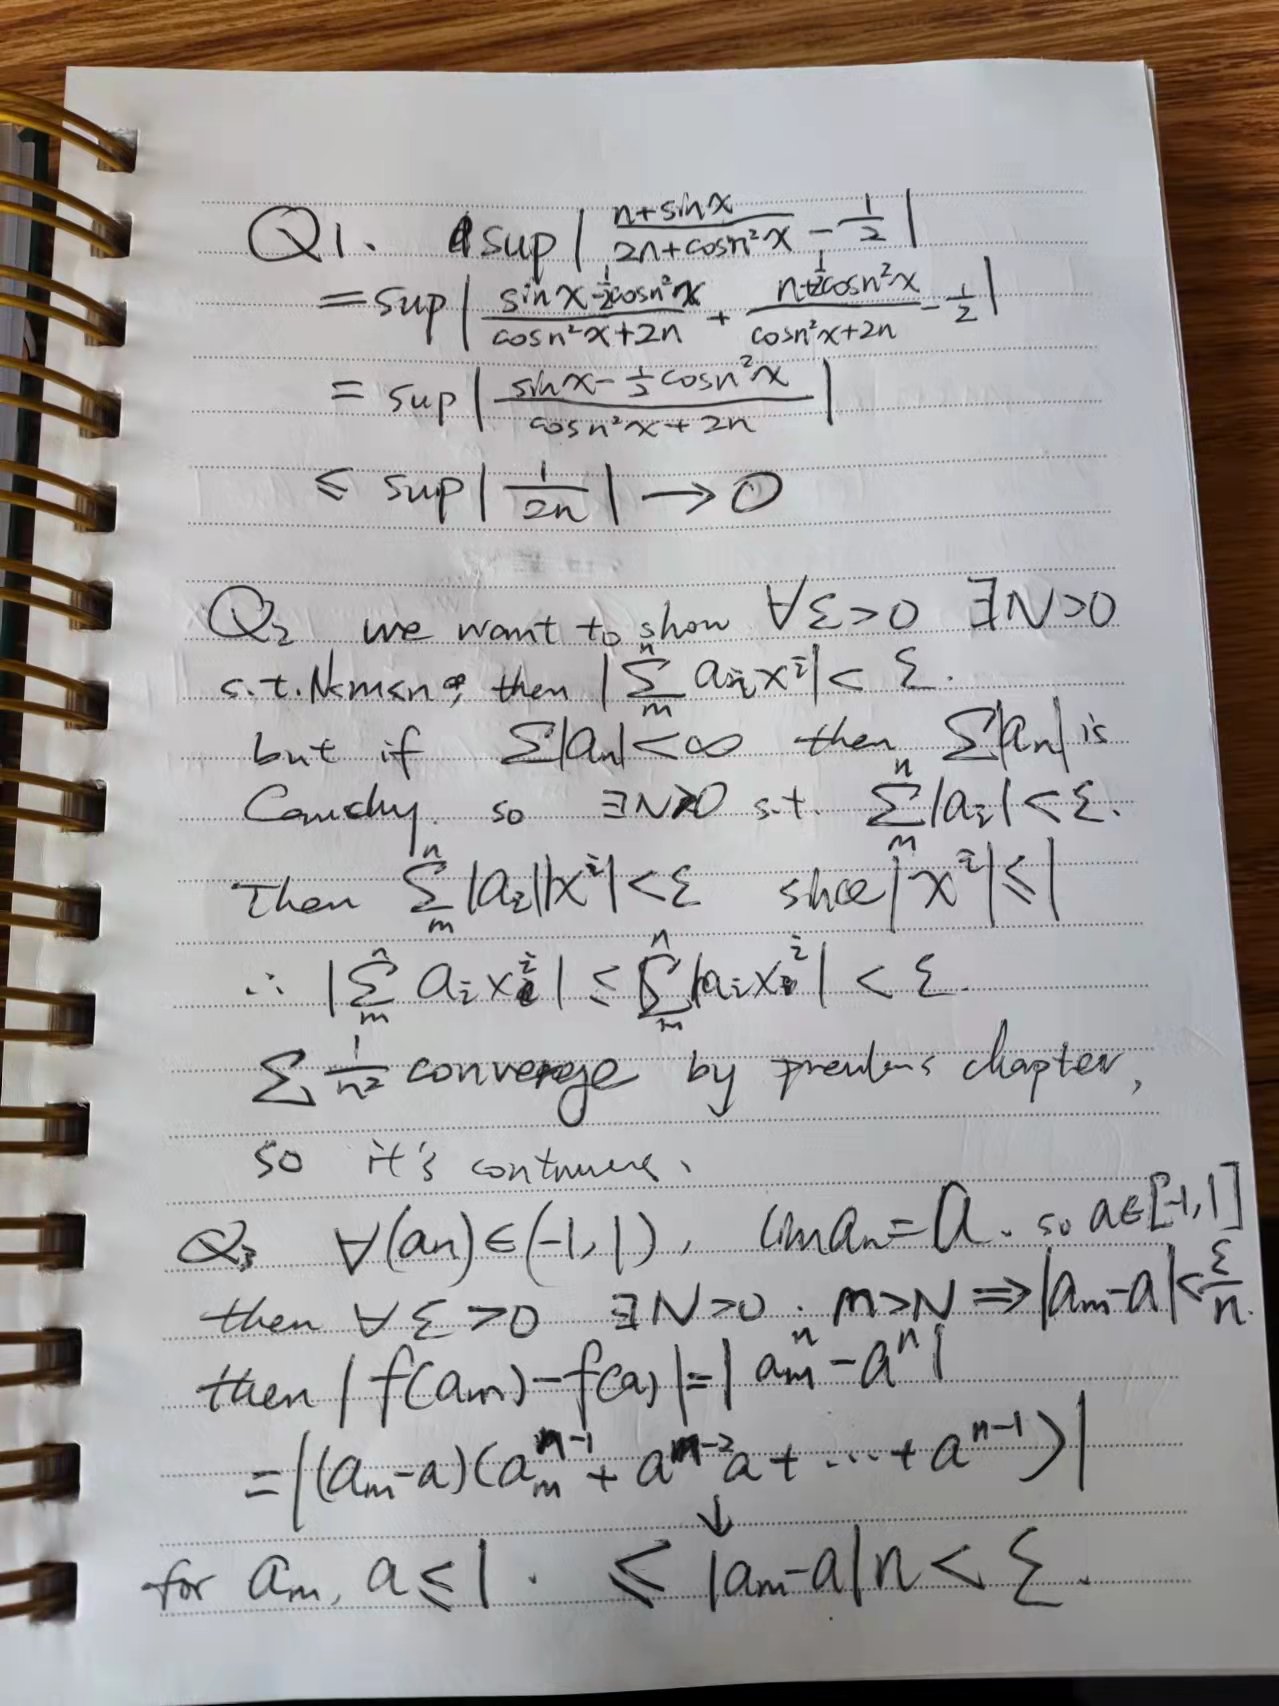 Q1. sup | (n+sinx)/(2n+cosn²x) - 1/2 |
= sup | (sinx - 1/2 cosn²x)/(cosn²x+2n) + (n+1/2 cosn²x)/(cosn²x+2n) - 1/2 |
= sup | (sinx - 1/2 cosn²x)/(cosn²x+2n) |
≤ sup | 1/2n | → 0
Q2 we want to show ∀ε>0 ∃N>0
s.t. N≤m≤n, then |∑_m^n a_i x^i| < ε.
but if ∑|an| < ∞ then ∑|an| is
Cauchy. so ∃N>0 s.t. ∑_m^n |a_i| < ε.
Then ∑_m^n |a_i||x^i| < ε since |x^i| ≤ 1
∴ |∑_m^n a_i x^i| ≤ ∑_m^n |a_i x^i| < ε.
∑ 1/n² converge by previous chapter,
so it's continuous.
Q3 ∀(an)∈(-1,1), liman=a. so a∈[-1,1]
then ∀ε>0 ∃N>0. m>N ⇒ |am-a| < ε/n.
then |f(am)-f(a)| = |am^n - a^n|
= |(am-a)(am^(n-1) + a^(n-2)a + ... + a^(n-1))|
↓
for am, a ≤ 1. ≤ |am-a|n < ε.